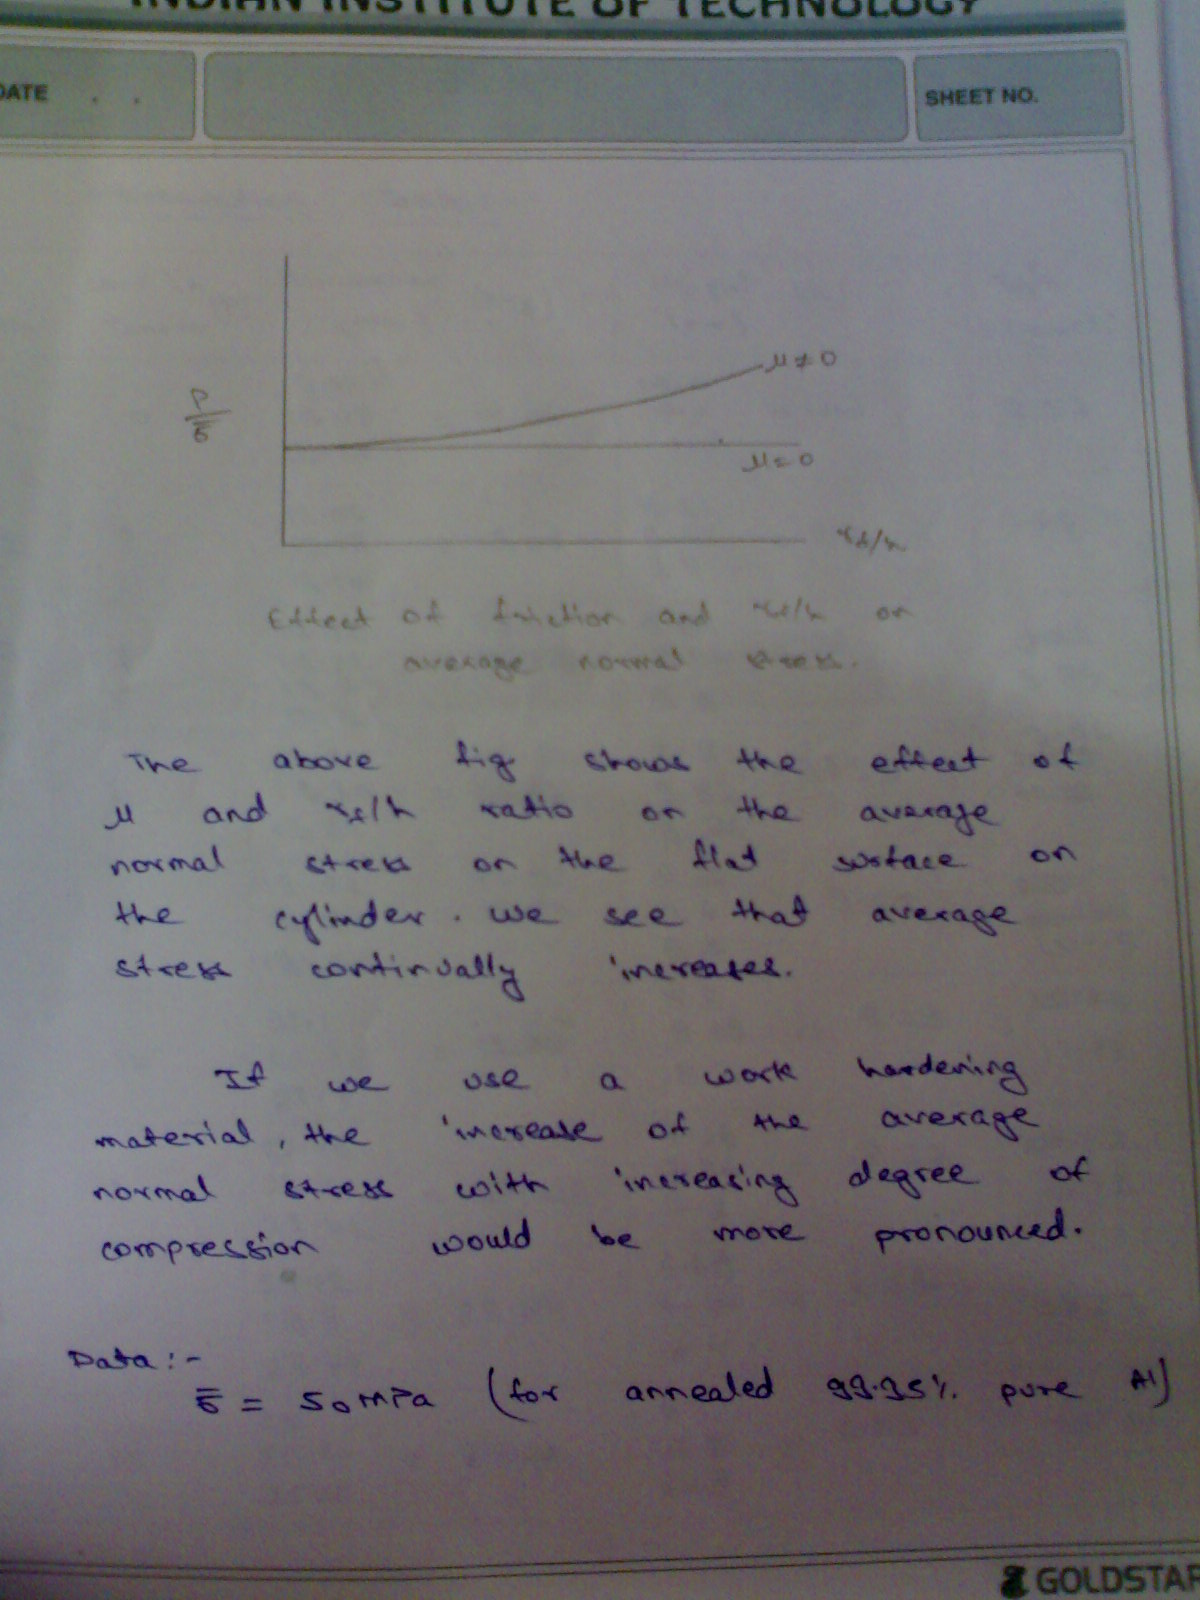 INDIAN INSTITUTE OF TECHNOLOGY
DATE . .
SHEET NO.
μ ≠ 0
P/σ̄
μ = 0
r_f/h
Effect of friction and r_f/h on
average normal stress.
The above fig shows the effect of
μ and r_f/h ratio on the average
normal stress on the flat surface on
the cylinder. We see that average
stress continually increases.
If we use a work hardening
material, the increase of the average
normal stress with increasing degree of
compression would be more pronounced.
Data :-
σ̄ = 50 MPa (for annealed 99.95% pure Al)
GOLDSTAR